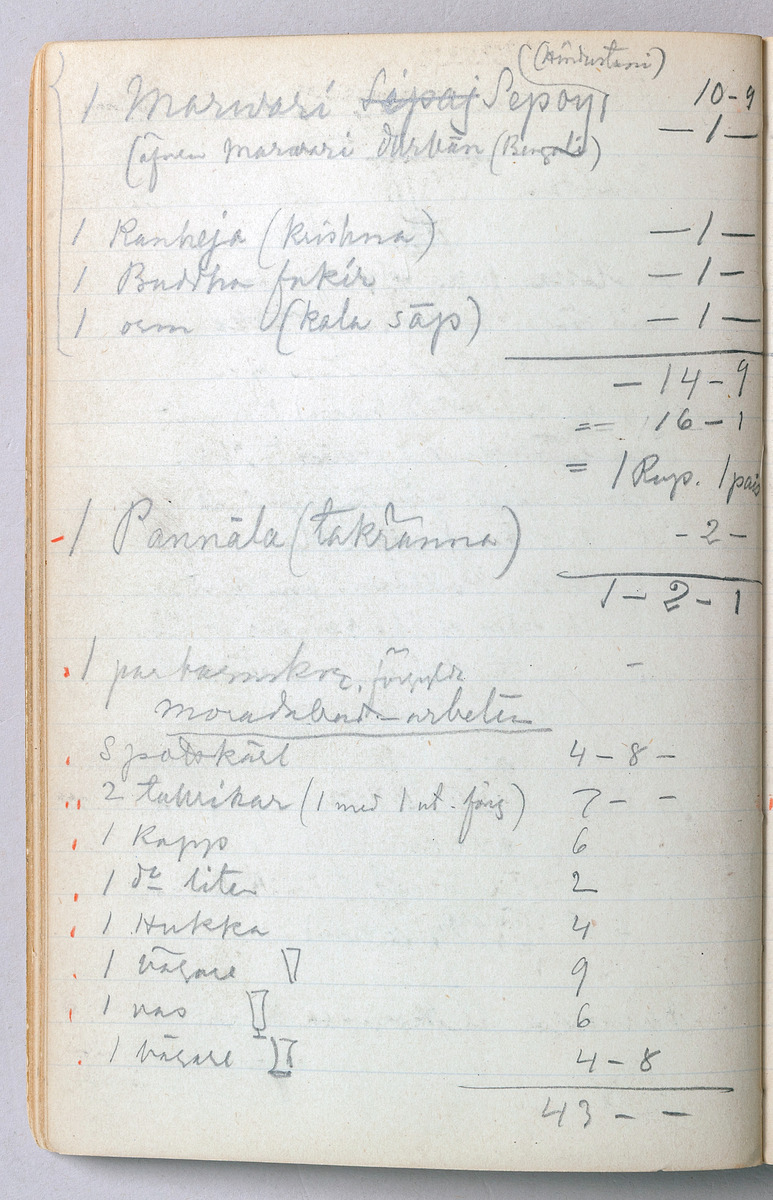 (Hindustani)
1 Marwari Sipaj Sepoy, 10-9
(äfven Marwari Durbän (Bengali) — 1 —
1 Kanheja (Krishna) — 1 —
1 Buddha fakir — 1 —
1 orm (kala säp) — 1 —
— 14 — 9
== 16 — 1
= 1 Rup. 1 pais
1 Pannäla (takränna) - 2 -
1 - 2 - 1
1 par förgylda -
Moradabad-arbeten
4 - 8 -
2 (1 med 1 ut. färg) 7 - -
1 Kopp 6
1 do liten 2
1 Hukka 4
1 bägare 9
1 vas 6
1 bägare 4 - 8
43 - -